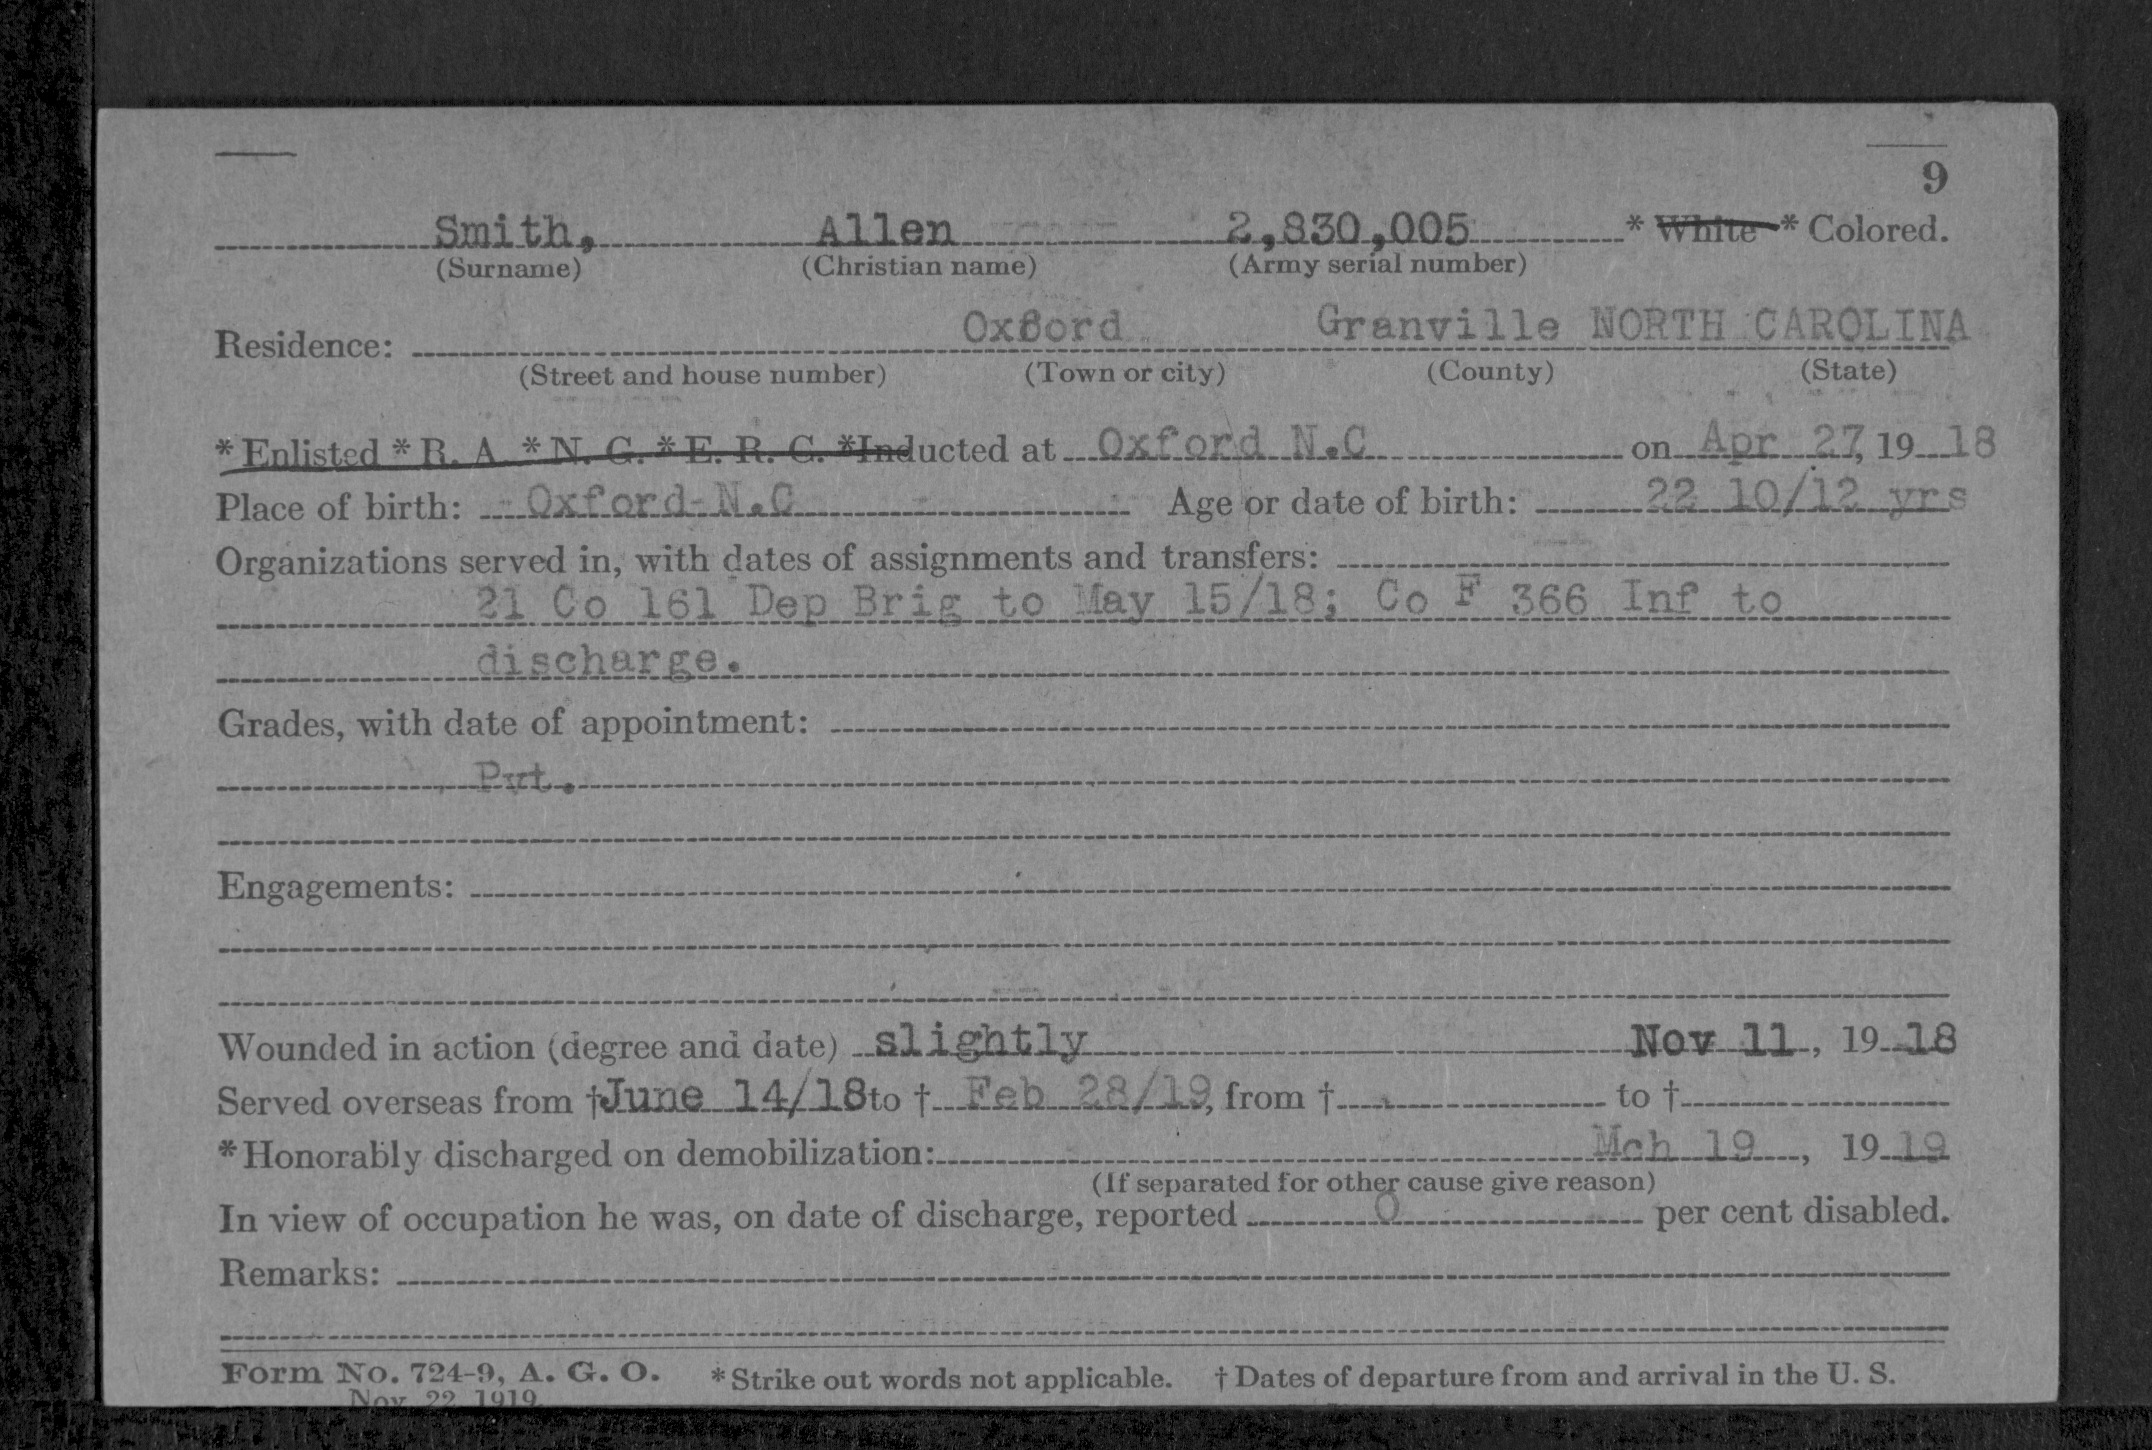 9
Smith, Allen 2,830,005 * White * Colored.
(Surname) (Christian name) (Army serial number)
Residence: Oxford Granville NORTH CAROLINA
(Street and house number) (Town or city) (County) (State)
* Enlisted * R. A. * N. G. * E. R. C. *Inducted at Oxford N.C on Apr 27, 19 18
Place of birth: Oxford N.C Age or date of birth: 22 10/12 yrs
Organizations served in, with dates of assignments and transfers:
21 Co 161 Dep Brig to May 15/18; Co F 366 Inf to
discharge.
Grades, with date of appointment:
Pvt.
Engagements:
Wounded in action (degree and date) slightly Nov 11, 19 18
Served overseas from †June 14/18 to † Feb 28/19, from † to †
*Honorably discharged on demobilization: Mch 19, 19 19
(If separated for other cause give reason)
In view of occupation he was, on date of discharge, reported 0 per cent disabled.
Remarks:
Form No. 724-9, A. G. O. *Strike out words not applicable. † Dates of departure from and arrival in the U. S.
Nov. 22, 1919.